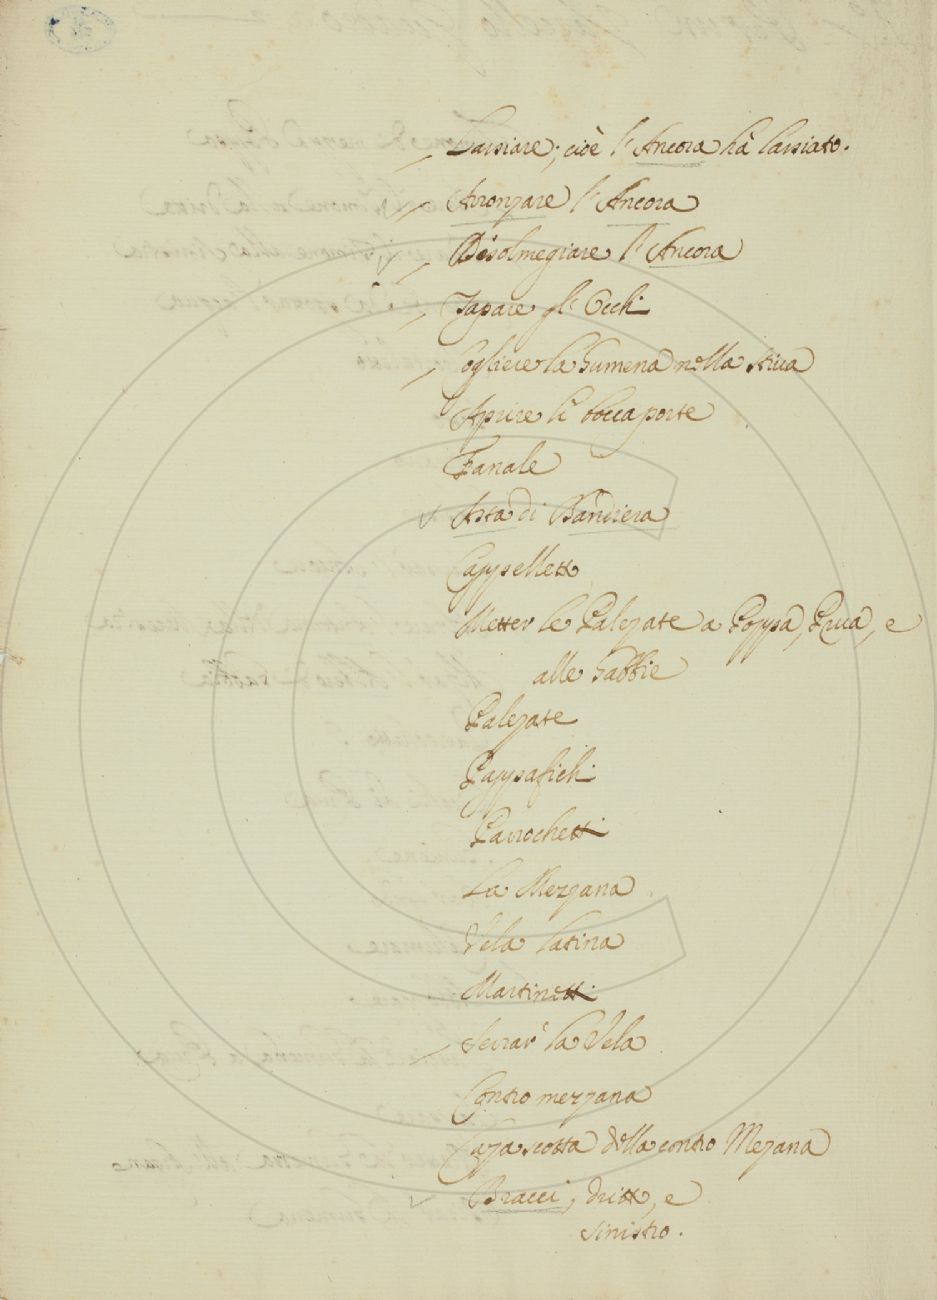 Larsiare; cioè l'Ancora hà larsiato.
Arronzare l'Ancora
Disolmegiare l'Ancora
Tapare gl'Occhi
Cogliere la Gumena nella stiva
Aprire li boccaporte
Fanale
Asta di Bandiera
Cappelletti
Metter le Palezate a Poppa, Prua, e
alle Gabbie
Palezate
Pappafichi
Parrochetti
La Mezzana
Vela latina
Martinetti
Serrar la Vela
Contro mezzana
Caza scotta della contro Mezana
Bracci, dritti, e
sinistro.